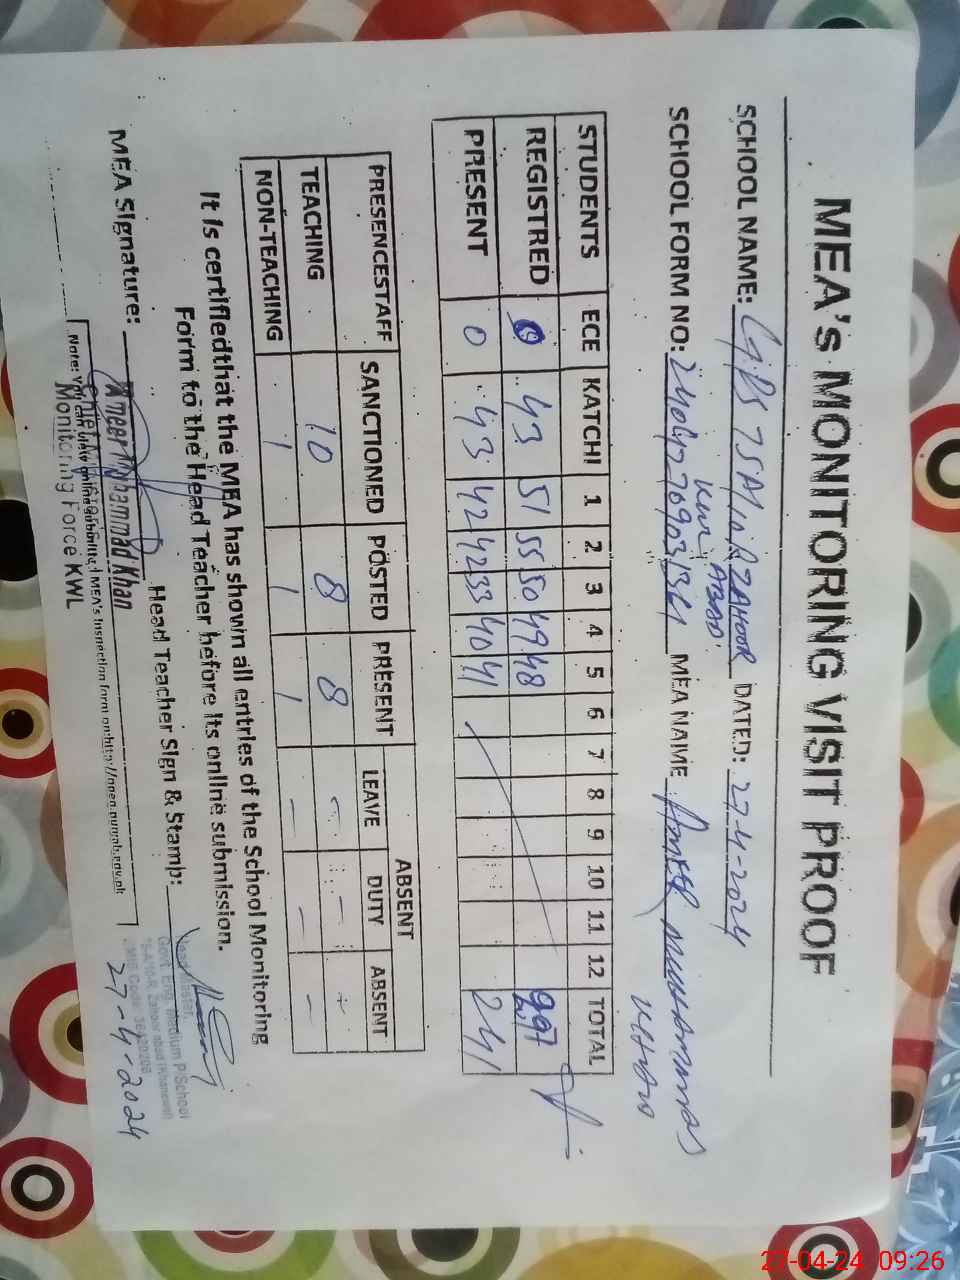 MEA's MONITORING VISIT PROOF
SCHOOL NAME: GPS 75A/10R ZAHOOR DATED: 27-4-2024
ABAD
SCHOOL FORM NO: MEA NAME Ameer Muhammad
Khan
STUDENTS ECE KATCHI 1 2 3 4 5 6 7 8 9 10 11 12 TOTAL
REGISTRED 43 51 55 50 49 48
PRESENT 0 43 42 42 33 40 41 241
PRESENCESTAFF SANCTIONED POSTED PRESENT ABSENT
LEAVE DUTY ABSENT
TEACHING 10 8 8 - - -
NON-TEACHING 1 1 1 - - -
It is certifiedthat the MEA has shown all entries of the School Monitoring
Form to the Head Teacher before its online submission.
MEA Signature: Head Teacher Sign & Stamp:
Ameer Muhammad Khan
Monitoring Force KWL
Head Master,
Govt. Eng. Medium P/School
75-A/10AR Zahoorabad (Khanewal)
27-4-2024
27-04-24 09:26